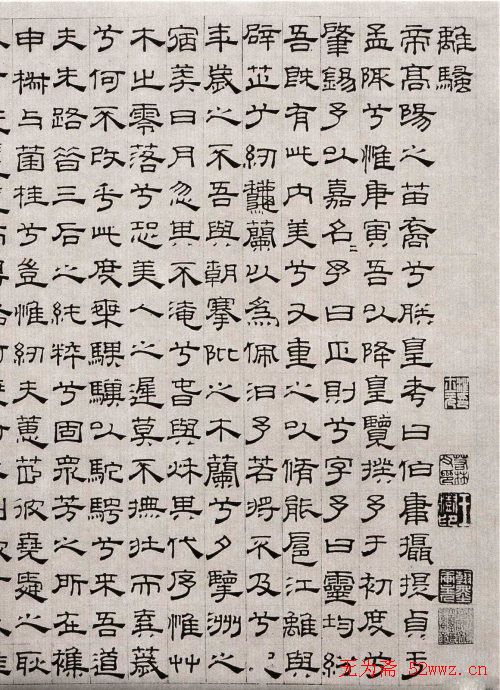 離騷
帝高陽之苗裔兮朕皇考曰伯庸攝提貞于
孟陬兮惟庚寅吾以降皇覽揆予于初度兮
肇錫予以嘉名〻予曰正則兮字予曰靈均紛
吾既有此內美兮又重之以脩能扈江離與
辟芷兮紉龝蘭以為佩汩予若將不及兮恐
年歲之不吾與朝搴阰之木蘭兮夕擥洲之
宿莽日月忽其不淹兮春與秌其代序惟艸
木之零落兮恐美人之遲莫不撫壯而棄薉
兮何不改乎此度椉騏驥以駝騁兮來吾道
夫先路昝三后之純粹兮固眾芳之所在襍
申椒与菌桂兮豈惟紉夫蕙茞彼堯舜之耿
无为斋·52wwz.cn